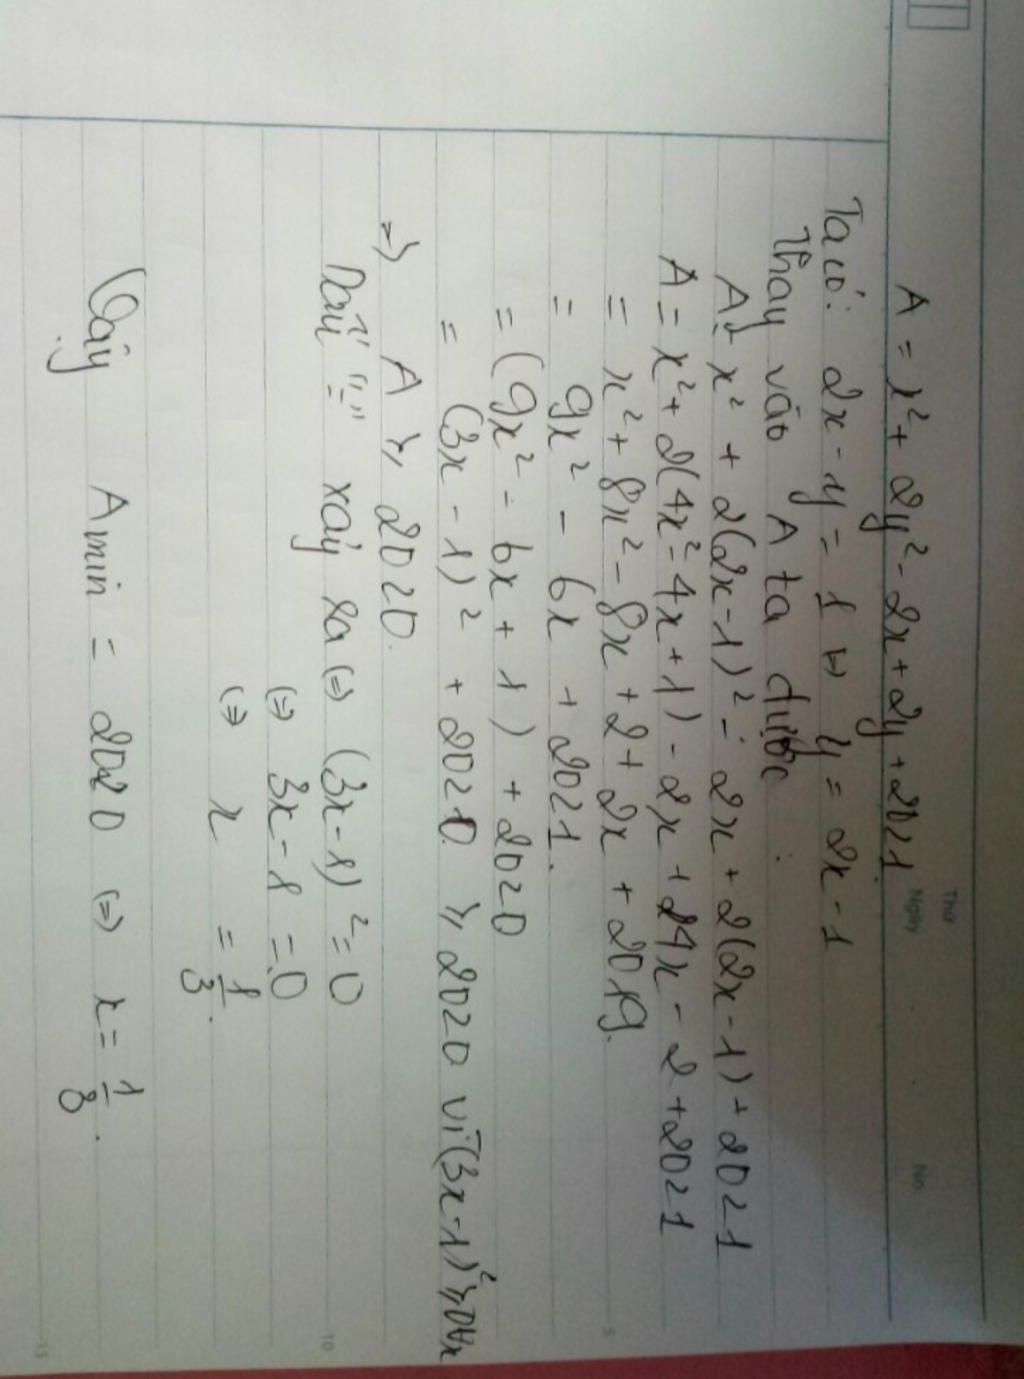 Thứ
Ngày No.
A = x² + 2y² - 2x + 2y + 2021.
Ta có: 2x - y = 1 ⇔ y = 2x - 1
Thay vào A ta được:
A = x² + 2(2x-1)² - 2x + 2(2x-1) + 2021
A = x² + 2(4x² - 4x + 1) - 2x + 4x - 2 + 2021
= x² + 8x² - 8x + 2 + 2x + 2019.
= 9x² - 6x + 2021.
= (9x² - 6x + 1) + 2020
= (3x - 1)² + 2020 ≥ 2020 vì (3x-1)² ≥ 0 ∀x
=> A ≥ 2020.
Dấu "=" xảy ra (=) (3x-1)² = 0
(=) 3x - 1 = 0
(=) x = 1/3.
Vậy Amin = 2020 (=) x = 1/3.
5
10
15